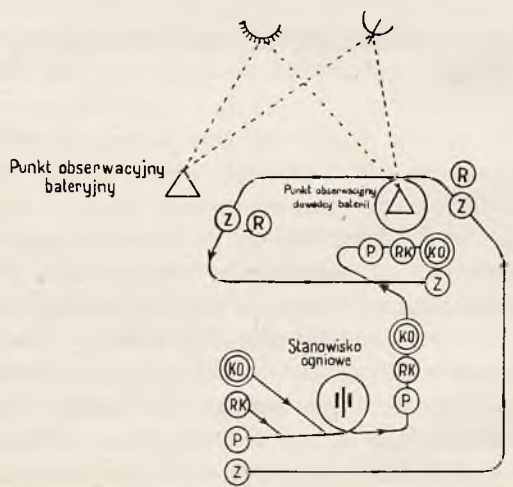 Punkt obserwacyjny
bateryjny
Punkt obserwacyjny
dowódcy baterii
R
Z
Z
R
P
RK
KO
Z
KO
RK
P
Stanowisko
ogniowe
KO
RK
P
Z